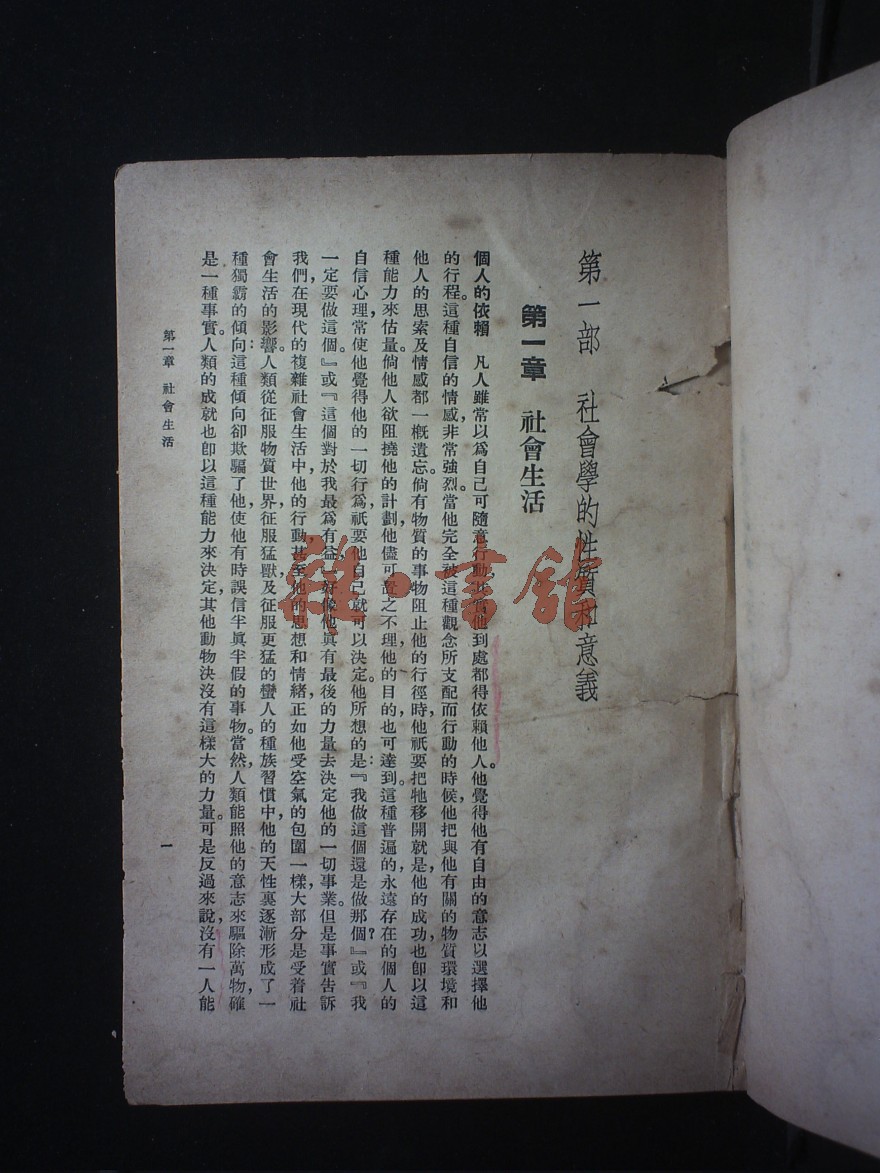 第一部 社會學的性質和意義
第一章 社會生活
個人的依賴 凡人雖常以爲自己可隨意行動,其實他到處都得依賴他人。他覺得他有自由的意志以選擇他
的行程。這種自信的情感,非常強烈。當他完全被這種觀念所支配而行動的時候,他把與他有關的物質環境和
他人的思索及情感都一概遺忘。倘有物質的事物阻止他的行徑時,他祇要把牠移開就是,他的成功也卽以這
種能力來估量。倘他人欲阻撓他的計劃,他儘可置之不理,他的目的也可達到。這種普遍的,永遠存在的個人的
自信心理,常使他覺得他的一切行爲,祇要他自己就可以決定。他所想的是:『我做這個還是做那個?』或『我
一定要做這個。』或『這個對於我最爲有益,』好像他眞有最後的力量去決定他的一切事業。但是事實告訴
我們,在現代的複雜社會生活中,他的行動,甚至他的思想和情緒,正如他受空氣的包圍一樣,大部分是受着社
會生活的影響。人類從征服物質世界,征服猛獸,及征服更猛的蠻人的種族習慣中,他的天性裏逐漸形成了一
種獨霸的傾向:這種傾向卻欺騙了他,使他有時誤信半眞半假的事物。當然,人類能照他的意志來驅除萬物,確
是一種事實。人類的成就也卽以這種能力來決定,其他動物決沒有這樣大的力量。可是反過來說,沒有一人能
第一章 社會生活
一
雜·書館